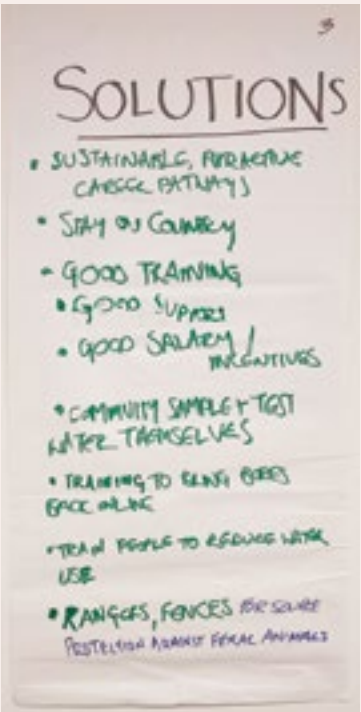 3
SOLUTIONS
• SUSTAINABLE, ATTRACTIVE
CAREER PATHWAYS
• STAY ON COUNTRY
- GOOD TRAINING
• GOOD SUPPORT
• GOOD SALARY /
INCENTIVES
• COMMUNITY SAMPLE + TEST
WATER THEMSELVES
• TRAINING TO BRING BORES
BACK ONLINE
• TRAIN PEOPLE TO REDUCE WATER
USE
• RANGERS, FENCES FOR SOURCE
PROTECTION AGAINST FERAL ANIMALS